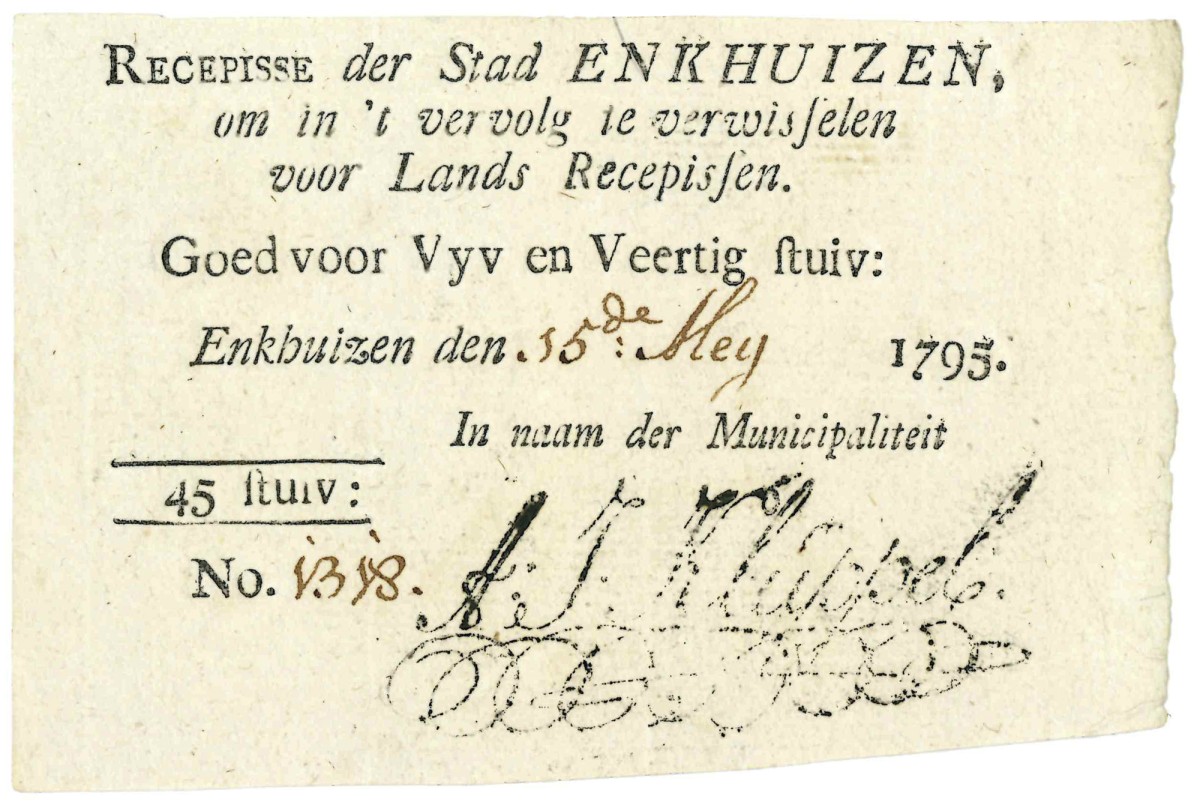 RECEPISSE der Stad ENKHUIZEN,
om in 't vervolg te verwisſelen
voor Lands Recepisſen.
Goed voor Vyv en Veertig ſtuiv:
Enkhuizen den 15de: Mey 1795.
In naam der Municipaliteit
45 ſtuiv:
No. 1318.
A: J: Kluppel.